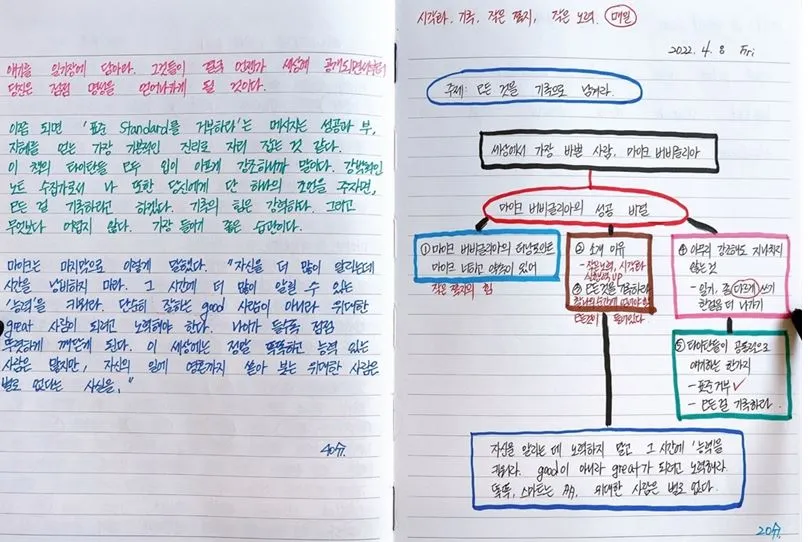 얘기를 일기장에 담아라. 그것들이 결국 언젠가 세상에 공개되면서부터
당신은 점점 명성을 얻어나가게 될 것이다.
이쯤 되면 '표준 Standard를 거부하라'는 메시지는 성공과 부,
지혜를 얻는 가장 기본적인 진리로 자리 잡는 것 같다.
이 책의 타이탄들 모두 입이 아프게 강조하니까 말이다. 강박적인
노트 수집가로서 나 또한 당신에게 단 하나의 조언을 주자면,
모든 걸 기록하라고 하겠다. 기록의 힘은 강력하다. 그리고
무엇보다 어렵지 않다. 가장 들이기 좋은 습관이다.
마이크는 마지막으로 이렇게 말했다. "자신을 더 많이 알리는데
시간을 낭비하지 마라. 그 시간에 더 많이 알릴 수 있는
'능력'을 키워라. 단순히 잘하는 good 사람이 아니라 위대한
great 사람이 되려고 노력해야 한다. 나이가 들수록 점점
뚜렷하게 깨닫게 된다. 이 세상에는 정말 똑똑하고 능력 있는
사람은 많지만, 자신의 일에 영혼까지 쏟아 붓는 위대한 사람은
별로 없다는 사실을."
40쉬.
시각화, 기록, 작은 쪽지, 작은 노력. 매일
2022. 4. 8 Fri
주제: 모든 것을 기록으로 남겨라.
세상에서 가장 바쁜 사람, 마이크 버비글리아
마이크 버비글리아의 성공 비결
① 마이크 버비글리아의 책상맡에는
마이크 너하고 약속이 있어
작은 쪽지의 힘
② 소개 이유
- 작은 노력, 시각화
실천력 UP
③ 모든 것을 기록하라
모든 것이 들어있다
④ 아무리 강조해도 지나치지
않는 것
- 일기, 좀 다르게 쓰기
한걸음 더 나가기
⑤ 타이탄들이 공통적으로
얘기하는 한가지
- 표준 거부 ✓
- 모든 걸 기록하라.
자신을 알리는 데 노력하지 말고 그 시간에 '능력'을
키워라. good이 아니라 great가 되려고 노력해라.
똑똑, 스마트는 多, 위대한 사람은 별로 없다.
20쉬.